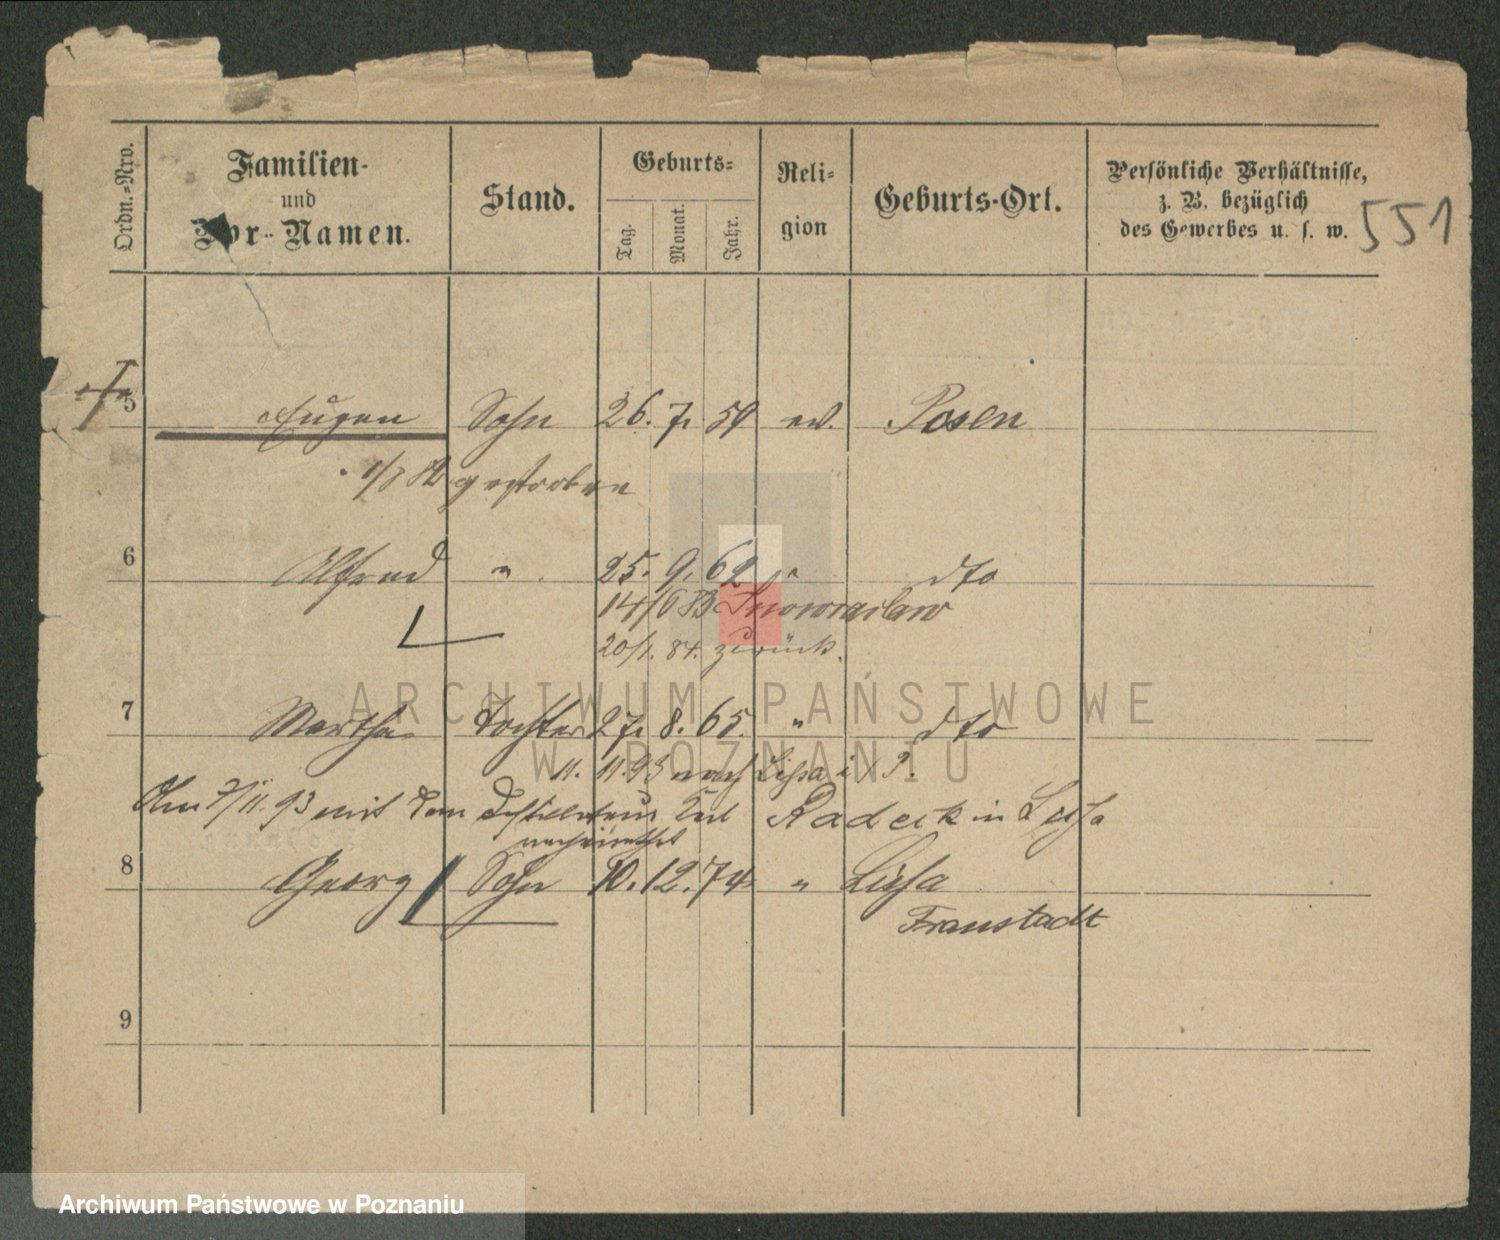 Ordn.-Nro.
Familien-
und
Vor-Namen.
Stand.
Geburts-
Tag.
Monat.
Jahr.
Reli-
gion
Geburts-Ort.
Persönliche Verhältnisse,
z. B. bezüglich
des Gewerbes u. s. w.
551
5 Eugen Sohn 26. 7. 59 ev. Posen
gestorben
6 Alfred " 25. 9. 62 " dto
14/6 83 Inowraclaw
20/1. 84. zurück.
7 Martha Tochter 27. 8. 65. " dto
11. 11. 93 nach Lissa i/P.
Am 7/11. 93 mit dem Destillateur Karl Radeck in Lissa
verheirathet
8 Georg Sohn 10. 12. 74 " Lissa
Fraustadt
9
ARCHIWUM PAŃSTWOWE
W POZNANIU
Archiwum Państwowe w Poznaniu